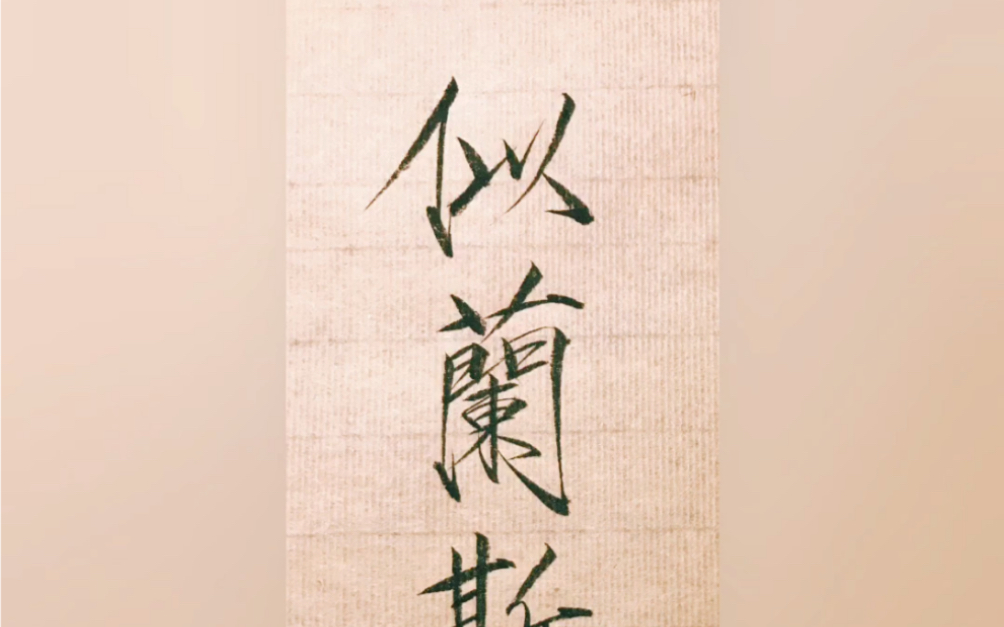 似蘭斯